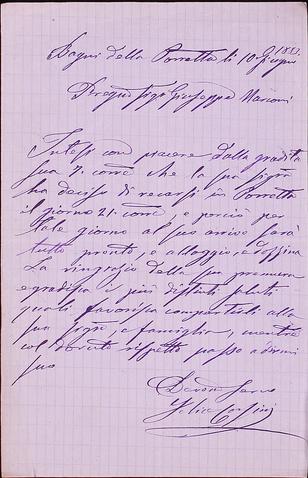 Bagni della Porretta li 10 Giugno 1883.
Pregmo Sigr Giuseppe Marconi
Intesi con piacere dalla gradita
sua 7. corre che la sua Sigra
ha deciso di recarsi in Porretta
il giorno 21. corre, e perciò per
tale giorno al suo arrivo sarà
tutto pronto, e alloggio, e
La ringrazio della sua premura
e gradisca i più distinti saluti
quali favorisca compartirli alla
sua Sigra, e famiglia, mentre
col dovuto rispetto passo a dirmi
suo
Devmo Servo